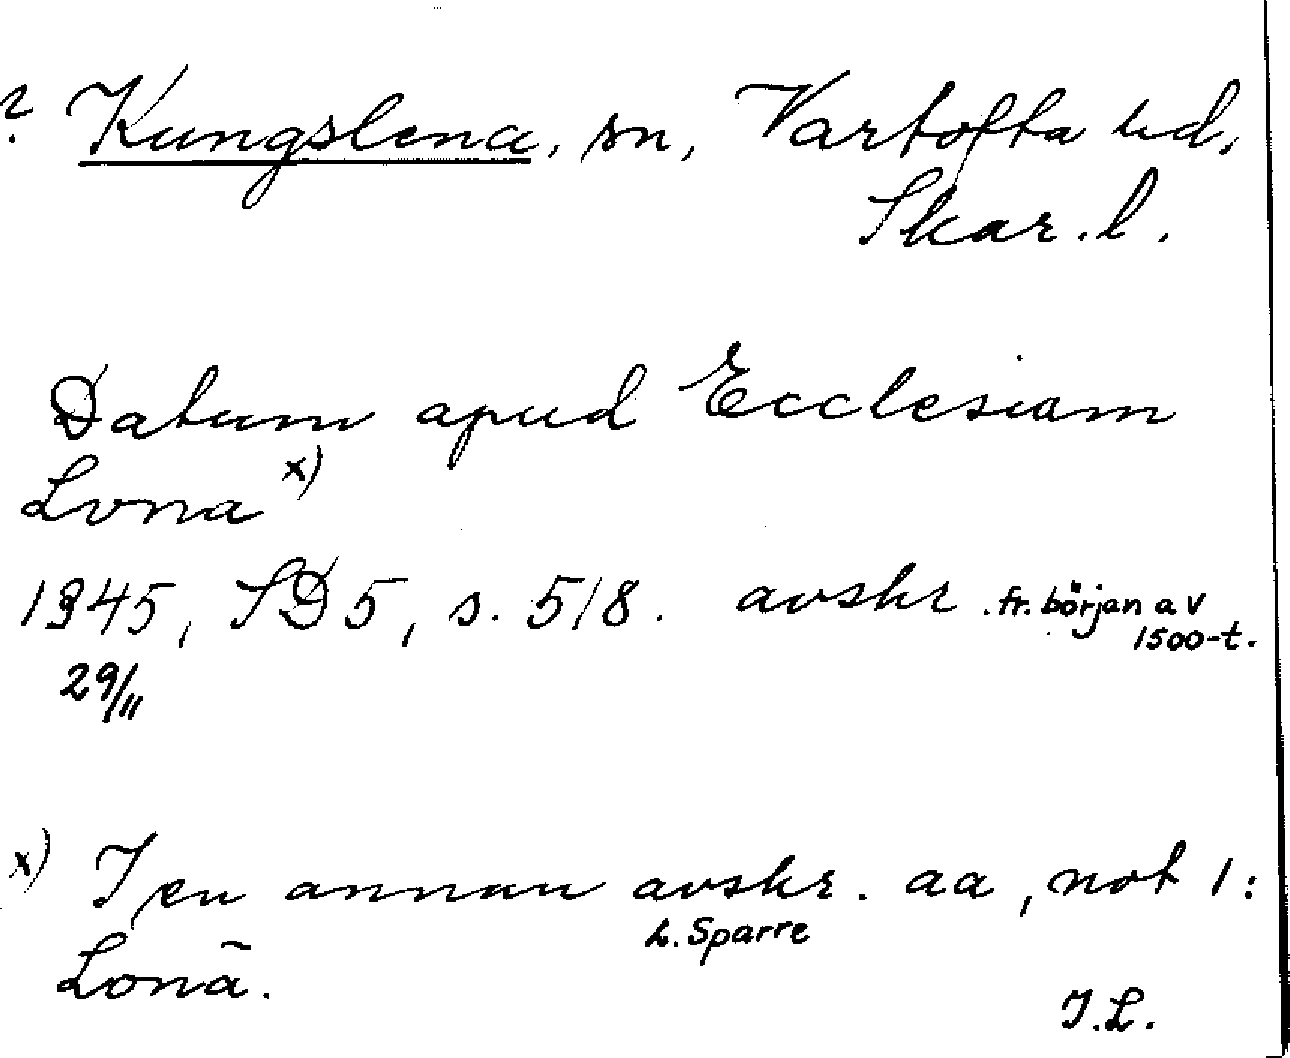 ? Kungslena, sn, Vartofta hd,
Skar. l.
Datum apud Ecclesiam
Lvna x)
1345, SD 5, s. 518. avskr. fr. början av
1500-t.
29/11
x) I en annan avskr. aa, not 1:
L. Sparre
Lonā.
I.L.